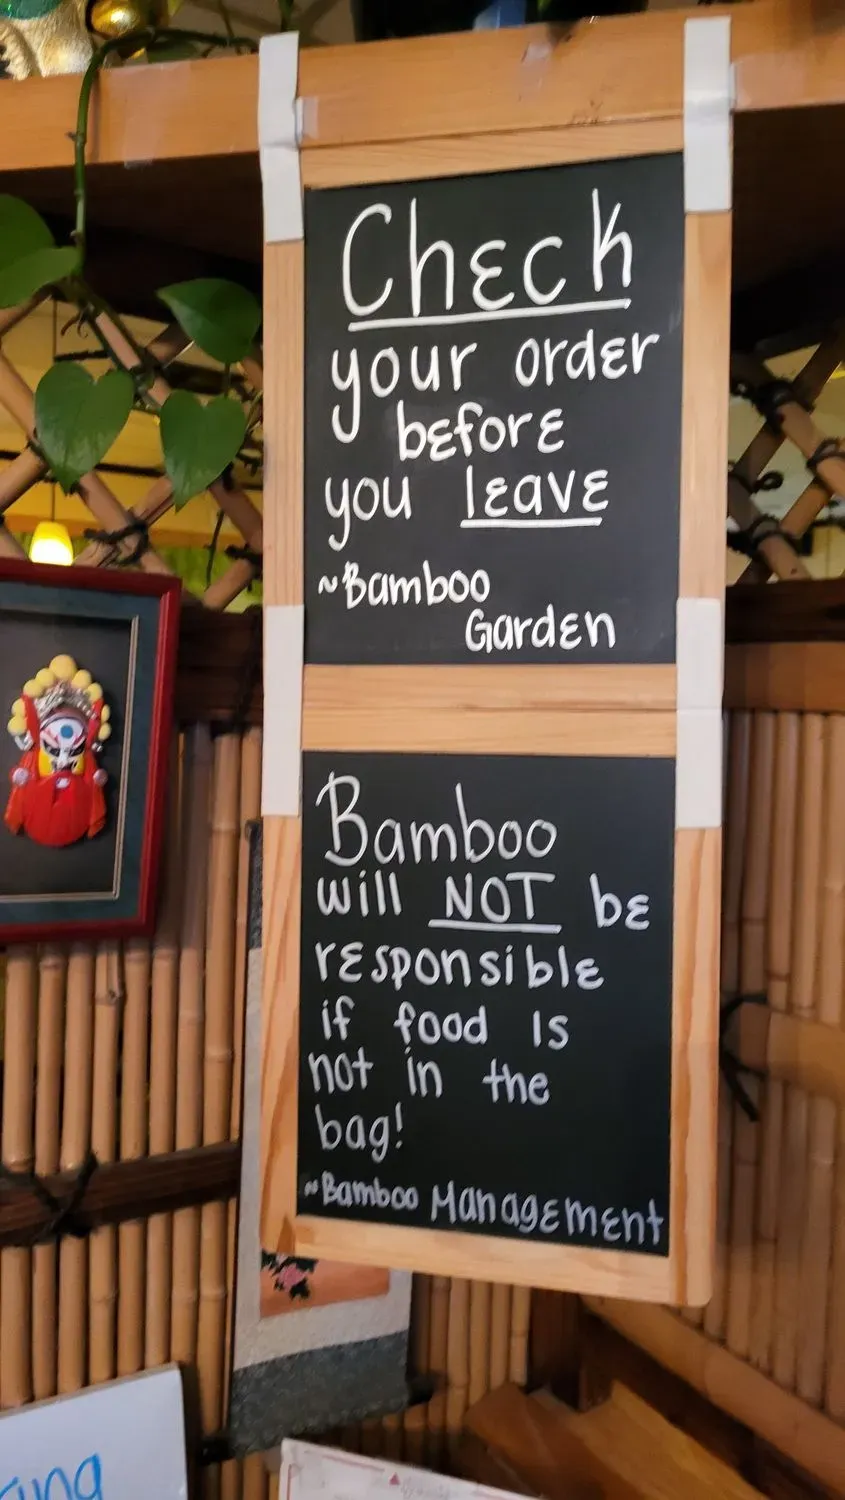 Check
your order
before
you leave
~Bamboo
Garden
Bamboo
will NOT be
responsible
if food is
not in the
bag!
~Bamboo Management